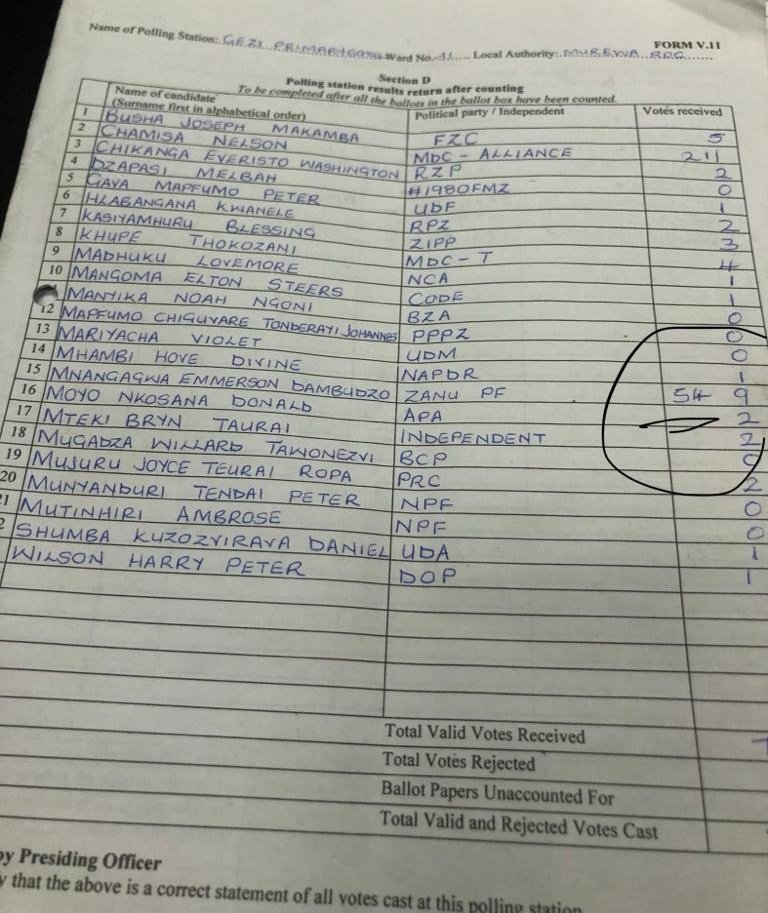 FORM V.11
Name of Polling Station: GEZI PRIMARY Ward No. 11 Local Authority: MUREWA RDC
Section D
Polling station results return after counting
To be completed after all the ballots in the ballot box have been counted.
Name of candidate (Surname first in alphabetical order) Political party / Independent Votes received
1 BUSHA JOSEPH MAKAMBA FZC 5
2 CHAMISA NELSON MDC - ALLIANCE 211
3 CHIKANGA EVERISTO WASHINGTON RZP 2
4 DZAPASI MELBAH #1980FMZ 0
5 GAVA MAPFUMO PETER UDF 1
6 HLABANGANA KWANELE RPZ 2
7 KASIYAMHURU BLESSING ZIPP 3
8 KHUPE THOKOZANI MDC - T 4
9 MADHUKU LOVEMORE NCA 1
10 MANGOMA ELTON STEERS CODE 1
MANYIKA NOAH NGONI BZA 0
12 MAPFUMO CHIGUVARE TONDERAYI JOHANNES PPPZ 0
13 MARIYACHA VIOLET UDM 0
14 MHAMBI HOVE DIVINE NAPDR 1
15 MNANGAGWA EMMERSON DAMBUDZO ZANU PF 54 9
16 MOYO NKOSANA DONALD APA 2
17 MTEKI BRYN TAURAI INDEPENDENT 2
18 MUGADZA WILLARD TAWONEZVI BCP
19 MUJURU JOYCE TEURAI ROPA PRC 2
20 MUNYANDURI TENDAI PETER NPF 0
21 MUTINHIRI AMBROSE NPF 0
2 SHUMBA KUZOZVIRAVA DANIEL UDA 1
WILSON HARRY PETER DOP 1
Total Valid Votes Received
Total Votes Rejected
Ballot Papers Unaccounted For
Total Valid and Rejected Votes Cast
by Presiding Officer
y that the above is a correct statement of all votes cast at this polling station